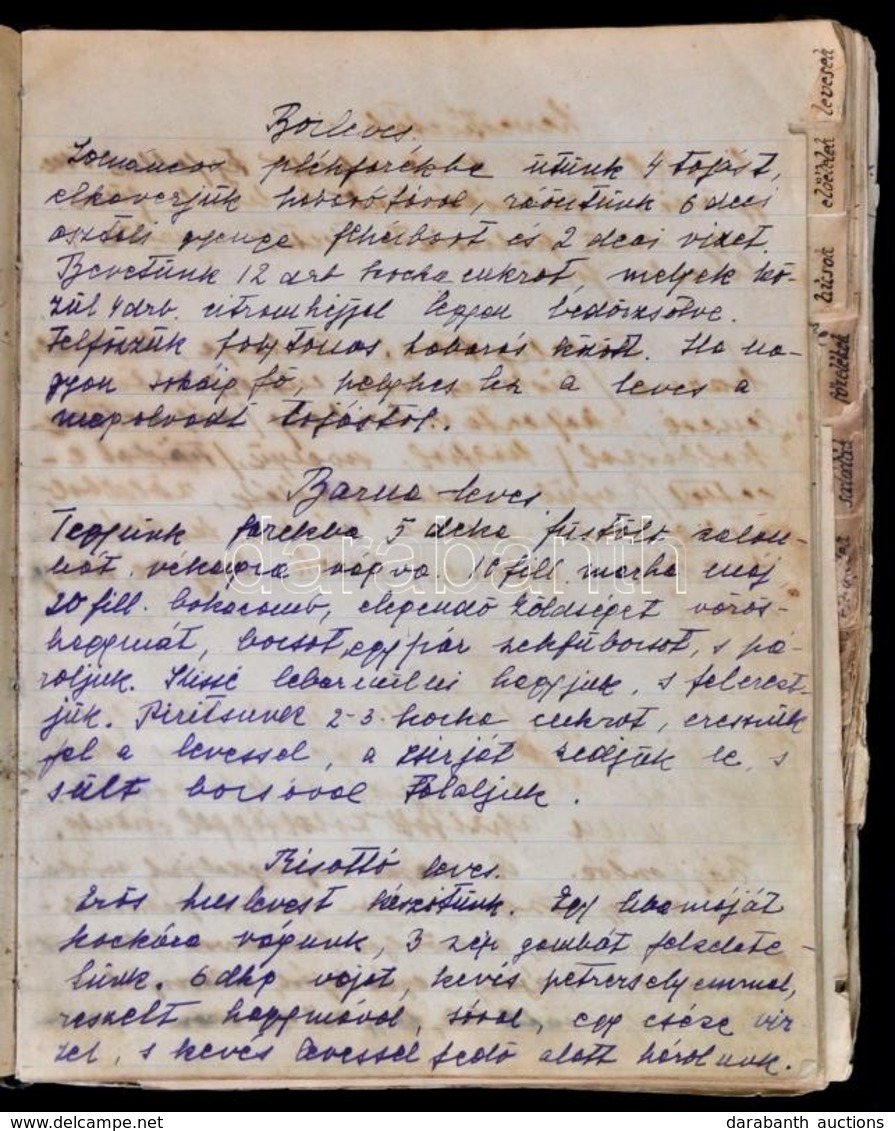 Borleves.
Zománcos plehfazékba ütünk 4 tojást,
elkaverjük habarófával, ráöntünk 6 deci
asztali gyenge fehérbort és 2 deci vizet.
Bevetünk 12 drb kocka cukrot, melyek kö-
zül 4 drb. citromhéjjal legyen bedörzsölve.
Felfőzzük folytonos habarás közt. Ha na-
gyon sokáig fő, pelyhes lesz a leves a
megalvadt tojástól.
Barna leves
Tegyünk fazékba 5 deka füstölt szalon-
nát, vékonyra vágva. 10 fill. marha máj,
20 fill. bokacomb, elegendő zöldséget vörös-
hagymát, borsot, egy pár szekfüborsot, s pá-
roljuk. Lassan lebarnulni hagyjuk, s felereszt-
jük. Piritsunk 2-3 kocka cukrot, eresszük
fel a levessel, a zsirját szedjük le, s
sült borsóval tálaljuk.
Risottó leves.
Erős huslevest készitünk. Egy libamáját
kockára vágunk, 3 szép gombát felszelete-
lünk. 6 dkg vajat, kevés petrezselyemmel,
reszelt hagymával, sóval, egy csésze viz-
zel, s kevés levessel fedő alatt párolunk.
levesek
előételek
húsok
főzelékek
saláták
darabanth
darabanth auctions
www.darabanth.com